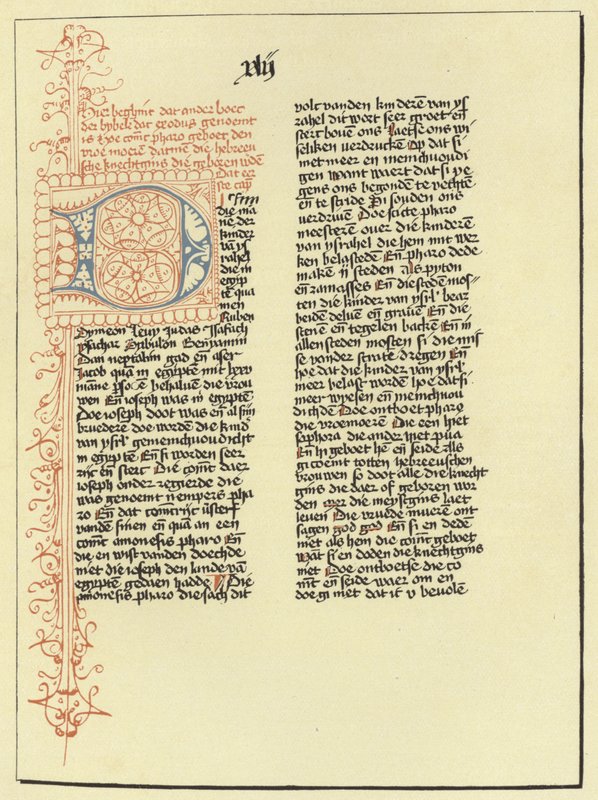 xlij
Hier beghint dat ander boec
der bybelē dat exodus genoemt
is Hoe conīc pharo geboet den
vroe moerē datmē die hebreeu
sche knechtgins die geborē wdē
Dat eer
ste cap
die na
ne der
kinder
vā ys
rahel
die in
egip
tē qua
men
Ruben
Symeon leuy Judas ysasach
ysachar Zabulōn Benyamin
Dan neptalim gad en aser
Jacob quā in egyptē mit
māne behaluē die vrou
wen En ioseph was in egyptē
Doe ioseph doot was en al sijn
bruedere doe wordē die kind
van ysrl' gemenichuoudicht
in egyptē En si worden seer
rijc en sterc Die conīc daer
ioseph onder regierde die
was genoemt nemperis pha
ro En dat conicrijc ūsterf
vandē sinen en quā an een
conīc amonesis pharo En
die en wist vanden doechde
niet die ioseph den lande vā
egyptē gedaen hadde Die
amonesis pharo die sach dit
volc vanden kinderē van ys
rahel dit wort seer groet en
sterc bouē ons Laetse ons wi
seliken verdruckē Op dat si
niet meer en menichuoudi
gen want waert dat si ye
gens ons begondē te vechtē
en te stride Si souden ons
verdriuē Doe sacte pharo
meesterē ouer die kinderē
van ysrahel die hem mit wer
ken belastedē En pharo dede
makē ij steden als pyton
en ramasses En die stedē mos
ten die kinder van ysrl' bear
beidē deluē en grauē En die
stenē en tegelen backē En in
allen steden mosten si die mis
se vander strate dregen En
hoe dat die kinder van ysrl'
meer belast wordē hoe dat si
meer wyesen en menichuou
dichdē Doe ontboet pharo
die vroemoerē Die een hiet
sephora die ander hiet pua
En hi geboet hē en seide Als
gi coemt totten hebreeuschen
vrouwen so doot alle die knecht
gins die daer of geboren wor
den mer die meysgins laet
leuen Die vruede muerē ont
sagen god gro En si en dedē
niet als hem die conīc geboet
Wāt si en doden die knechtgins
niet Doe ontboetse die co
nīc en seide waer om en
doe gi niet dat ic v beuolē